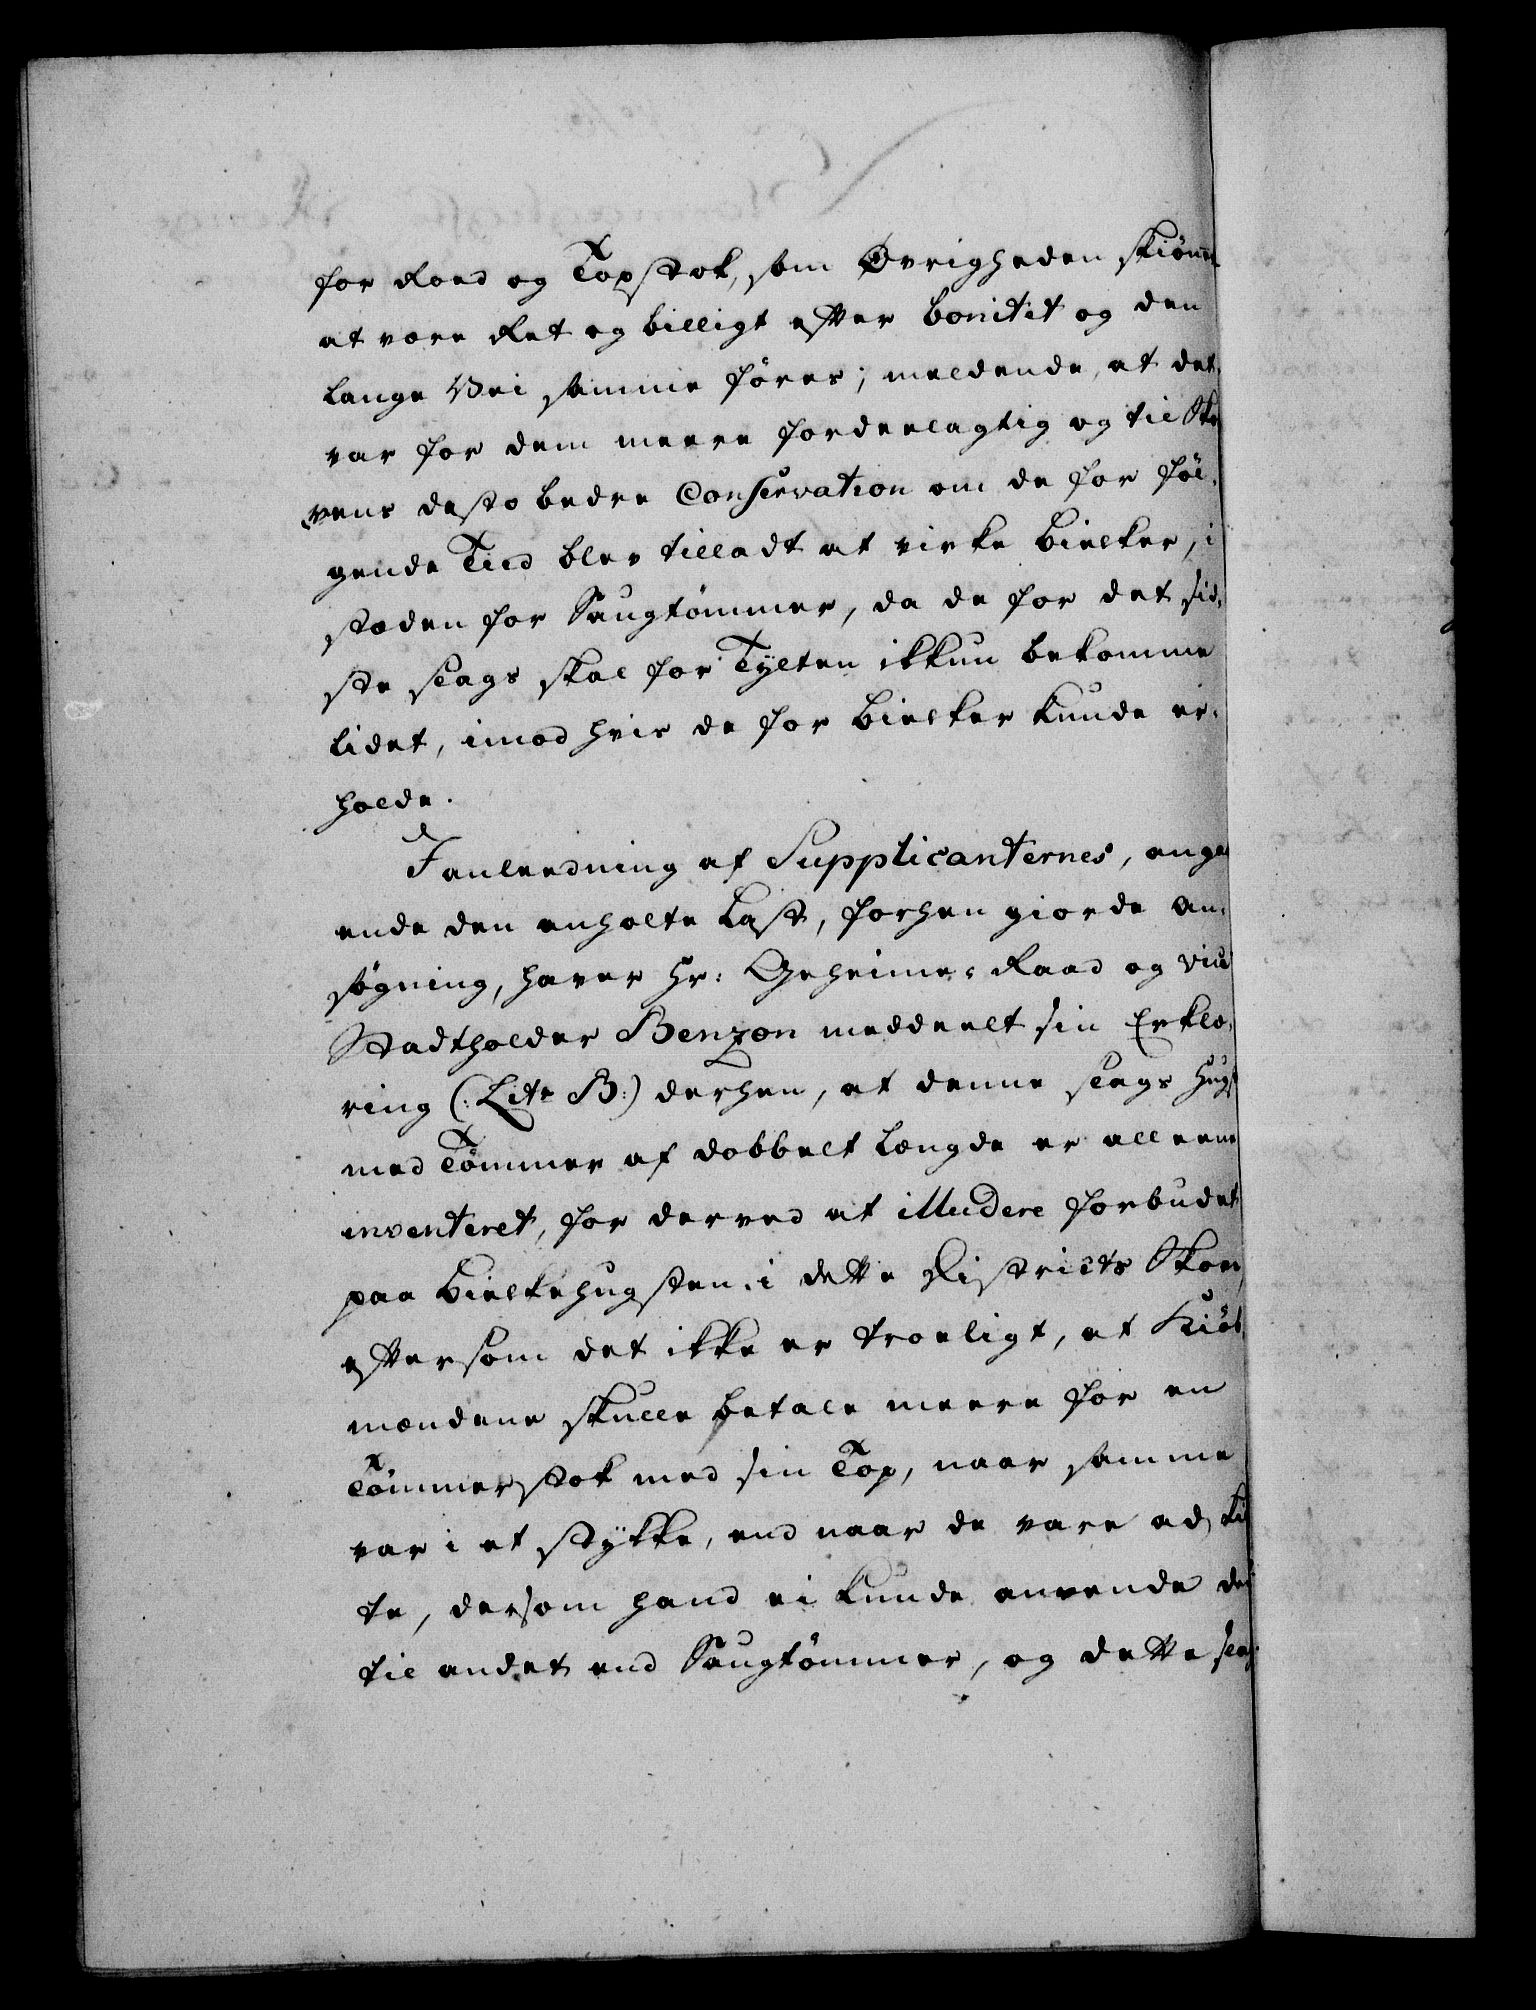 for Roed og Topstok, som Øvrigheden skiønne
at være Ret og billigt efter bonitet og den
lange Vei samme føres; meldende, at det
var for dem meere fordeelagtig og til Sko
vens desto bedre Conservation om de for føl-
gende Tiid blev tilladt at virke Bielker, i
stæden for Saugtømmer, da de for det sid-
ste slags skal for Tylten ikkun bekomme
lidet, imod hvis de for Bielker kunde er-
holde.
I anleedning af Supplicanternes, angaa
ende den anholte Last, forhen giorde An-
søgning, haver Hr: Geheime-Raad og Vice
Stadtholder Benzon meddeelt sin Erklæ-
ring (: Litr B:) derhen, at denne slags Hugst
med Tømmer af dobbelt Længde er alleene
inventeret, for derved at illudere forbudet
paa Bielkehugsten i dette Districts Skove,
eftersom det ikke er troeligt, at Kiøb-
mændene skulle betale meere for en
Tømmerstok med sin Top, naar samme
var i et stykke, end naar de vare adskil
te, dersom hand ei kunde anvende det
til andet end Saugtømmer, og dette slag